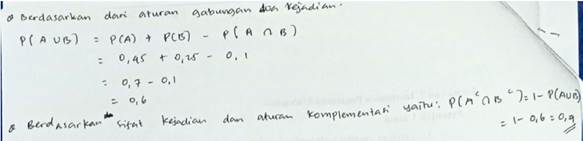 Berdasarkan dari aturan gabungan dua kejadian.
P(A ∪ B) = P(A) + P(B) - P(A ∩ B)
= 0,45 + 0,25 - 0,1
= 0,7 - 0,1
= 0,6
Berdasarkan sifat kejadian dan aturan komplementasi yaitu: P(Aᶜ ∩ Bᶜ) = 1 - P(A∪B)
= 1 - 0,6 = 0,4